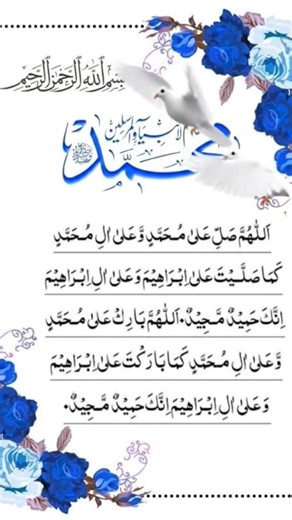 بِسْمِ اللهِ الرَّحْمٰنِ الرَّحِيْمِ
الأنبياء والمرسلين
محمد ﷺ
اَللّٰهُمَّ صَلِّ عَلٰى مُحَمَّدٍ وَّعَلٰى اٰلِ مُحَمَّدٍ
كَمَا صَلَّيْتَ عَلٰى اِبْرَاهِيْمَ وَعَلٰى اٰلِ اِبْرَاهِيْمَ
اِنَّكَ حَمِيْدٌ مَّجِيْدٌ. اَللّٰهُمَّ بَارِكْ عَلٰى مُحَمَّدٍ
وَّعَلٰى اٰلِ مُحَمَّدٍ كَمَا بَارَكْتَ عَلٰى اِبْرَاهِيْمَ
وَعَلٰى اٰلِ اِبْرَاهِيْمَ اِنَّكَ حَمِيْدٌ مَّجِيْدٌ.